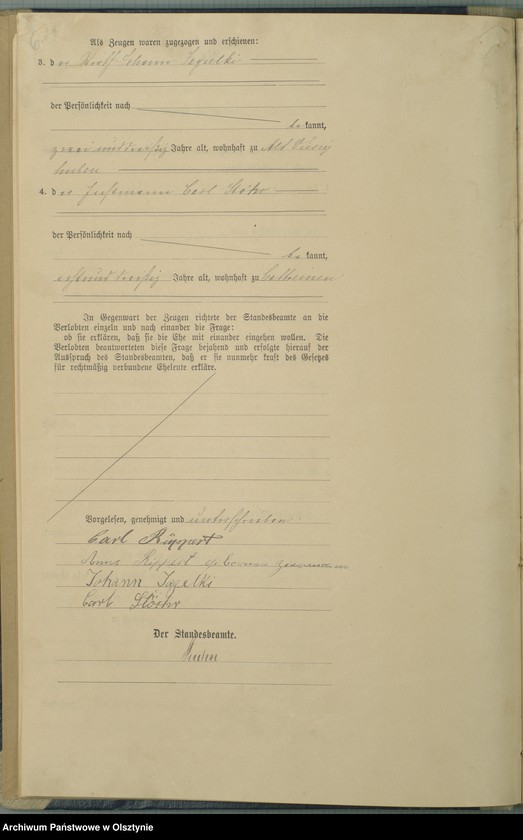 Als Zeugen waren zugezogen und erschienen:
3. der Johann
der Persönlichkeit nach
bekannt,
zwei und dreißig Jahre alt, wohnhaft zu Alt
4. der Carl Stöhr
der Persönlichkeit nach
bekannt,
und dreißig Jahre alt, wohnhaft zu
In Gegenwart der Zeugen richtete der Standesbeamte an die
Verlobten einzeln und nach einander die Frage:
ob sie erklären, daß sie die Ehe mit einander eingehen wollen. Die
Verlobten beantworteten diese Frage bejahend und erfolgte hierauf der
Ausspruch des Standesbeamten, daß er sie nunmehr kraft des Gesetzes
für rechtmäßig verbundene Eheleute erkläre.
Vorgelesen, genehmigt und unterschrieben
Carl Rippert
Rippert geborene
Johann
Carl Stöhr
Der Standesbeamte.
Archiwum Państwowe w Olsztynie